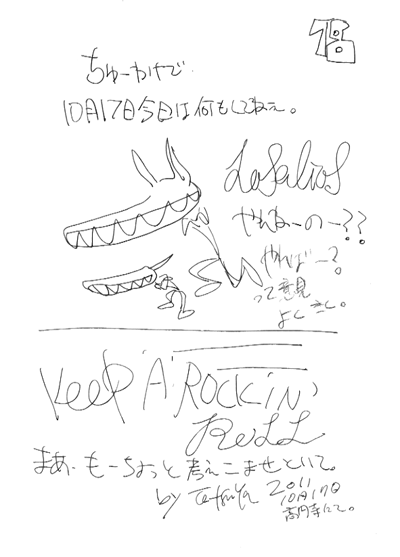 ちゅーわけで
10月17日今日は何もしてねえ。
LOSALIOS
やんねーのー??
やんばー?
って意見
よくきく。
KEEP 'A' ROCKIN'
ROLL
まあ、もーちょっと考えこませといて。
by Tetsuya 2011
10月17日
高円寺にて。